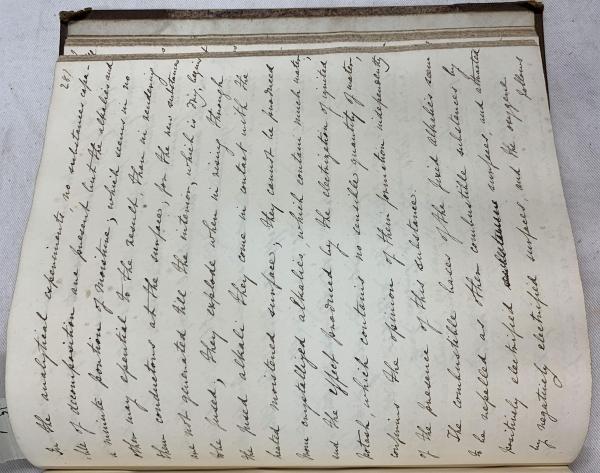 28)
In the analytical experiments, no substances capa-
ble of decomposition are present but the alkalies and
a minute portion of moisture; which seems in no
other way essential to the result, than in rendering
them conductors at the surface; for the new substances
are not generated till the interior, which is dry, begins
to be fused; they explode when in rising through
the fused alkali they come in contact with the
heated moistened surface; they cannot be produced
from crystallized alkalies, which contain much water;
and the effect produced by the electrization of ignited
potash, which contains no sensible quantity of water,
confirms the opinion of their formation independently
of the presence of this substance.
The combustible bases of the fixed alkalies seem
to be repelled as other combustible substances, by
positively electrified surfaces, and attracted
by negatively electrified surfaces, and the oxygene
follows